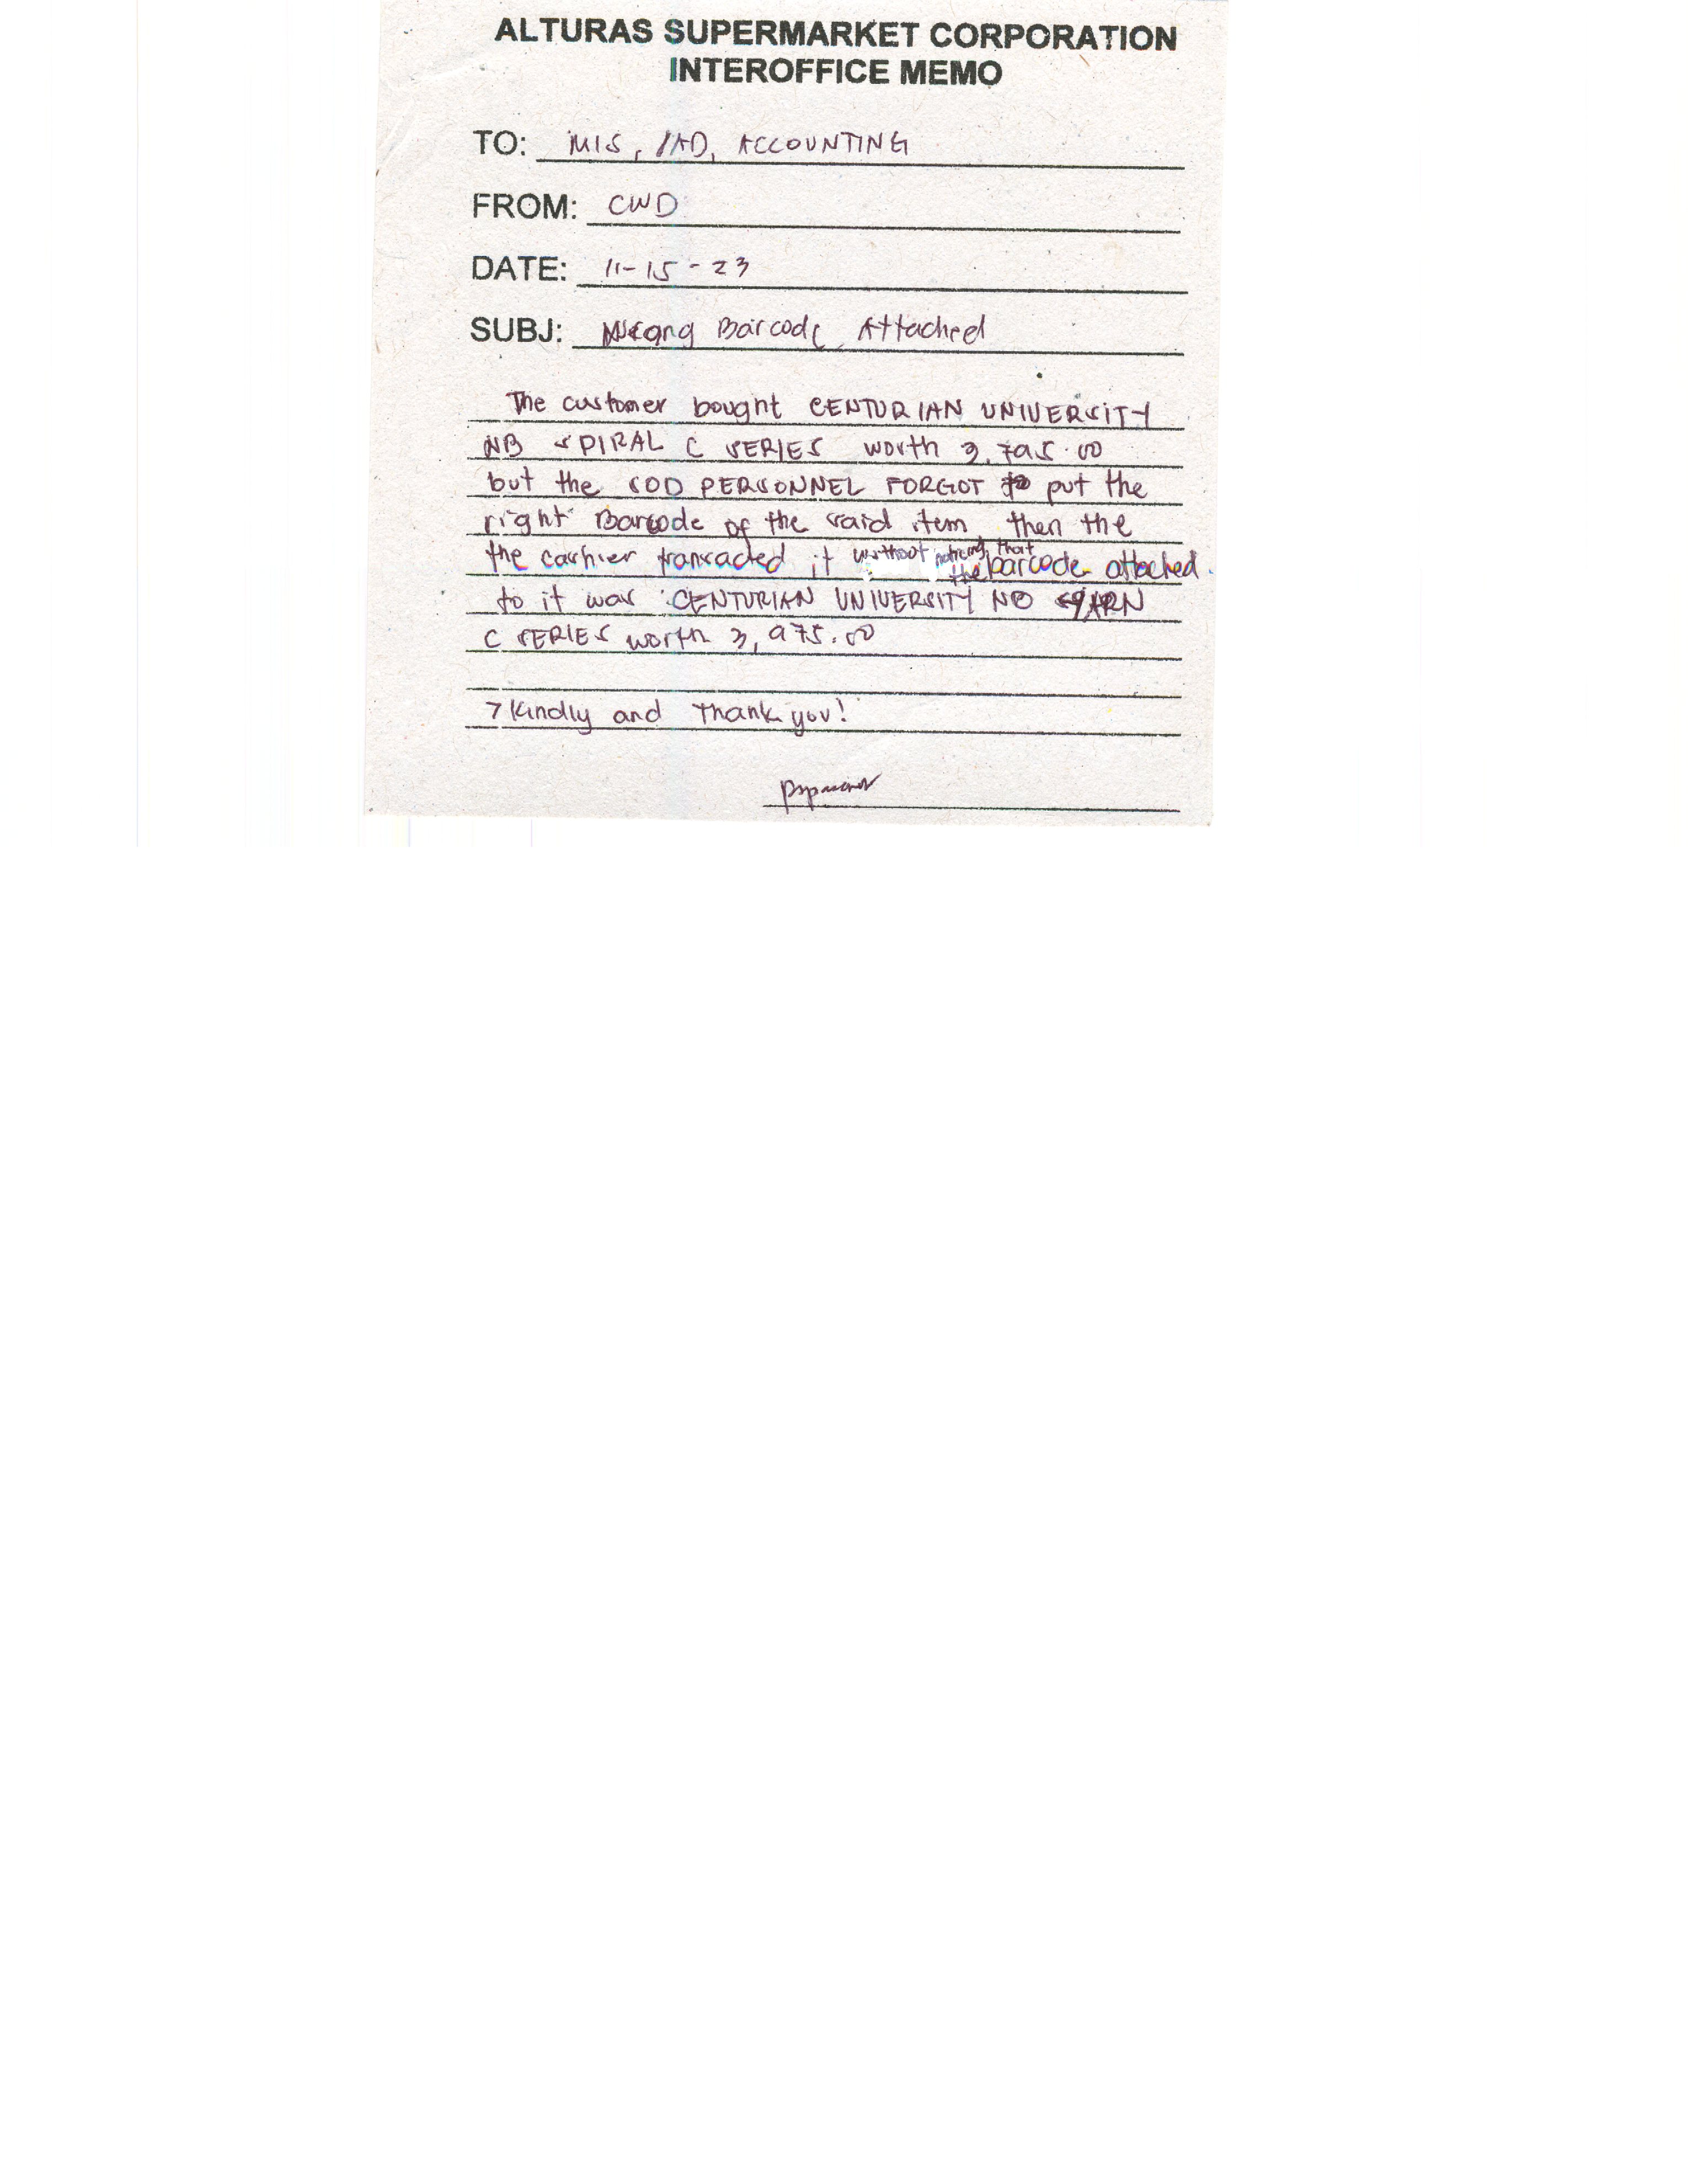 ALTURAS SUPERMARKET CORPORATION
INTEROFFICE MEMO
TO: MIS, IAD, ACCOUNTING
FROM: CWD
DATE: 11-15-23
SUBJ: Wrong Barcode Attached
The customer bought CENTURIAN UNIVERSITY
NB SPIRAL C SERIES worth 3,795.00
but the SOD PERSONNEL FORGOT to put the
right Barcode of the said item then the
the cashier transacted it without noticing that the barcode attached
to it was CENTURIAN UNIVERSITY NB YARN
C SERIES worth 3,975.00
Kindly and Thank you!